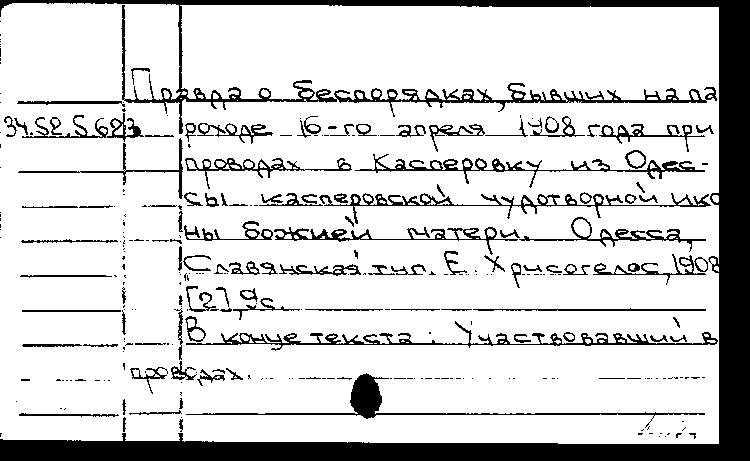 Правда о беспорядках, бывших на па
34.52.5.623 роходе 16-го апреля 1908 года при
проводах в Касперовку из Одес-
сы касперовской чудотворной ико
ны божией матери. Одесса,
Славянская тип. Е. Хрисогелос, 1908
[2], 9с.
В конце текста: Участвовавший в
проводах.